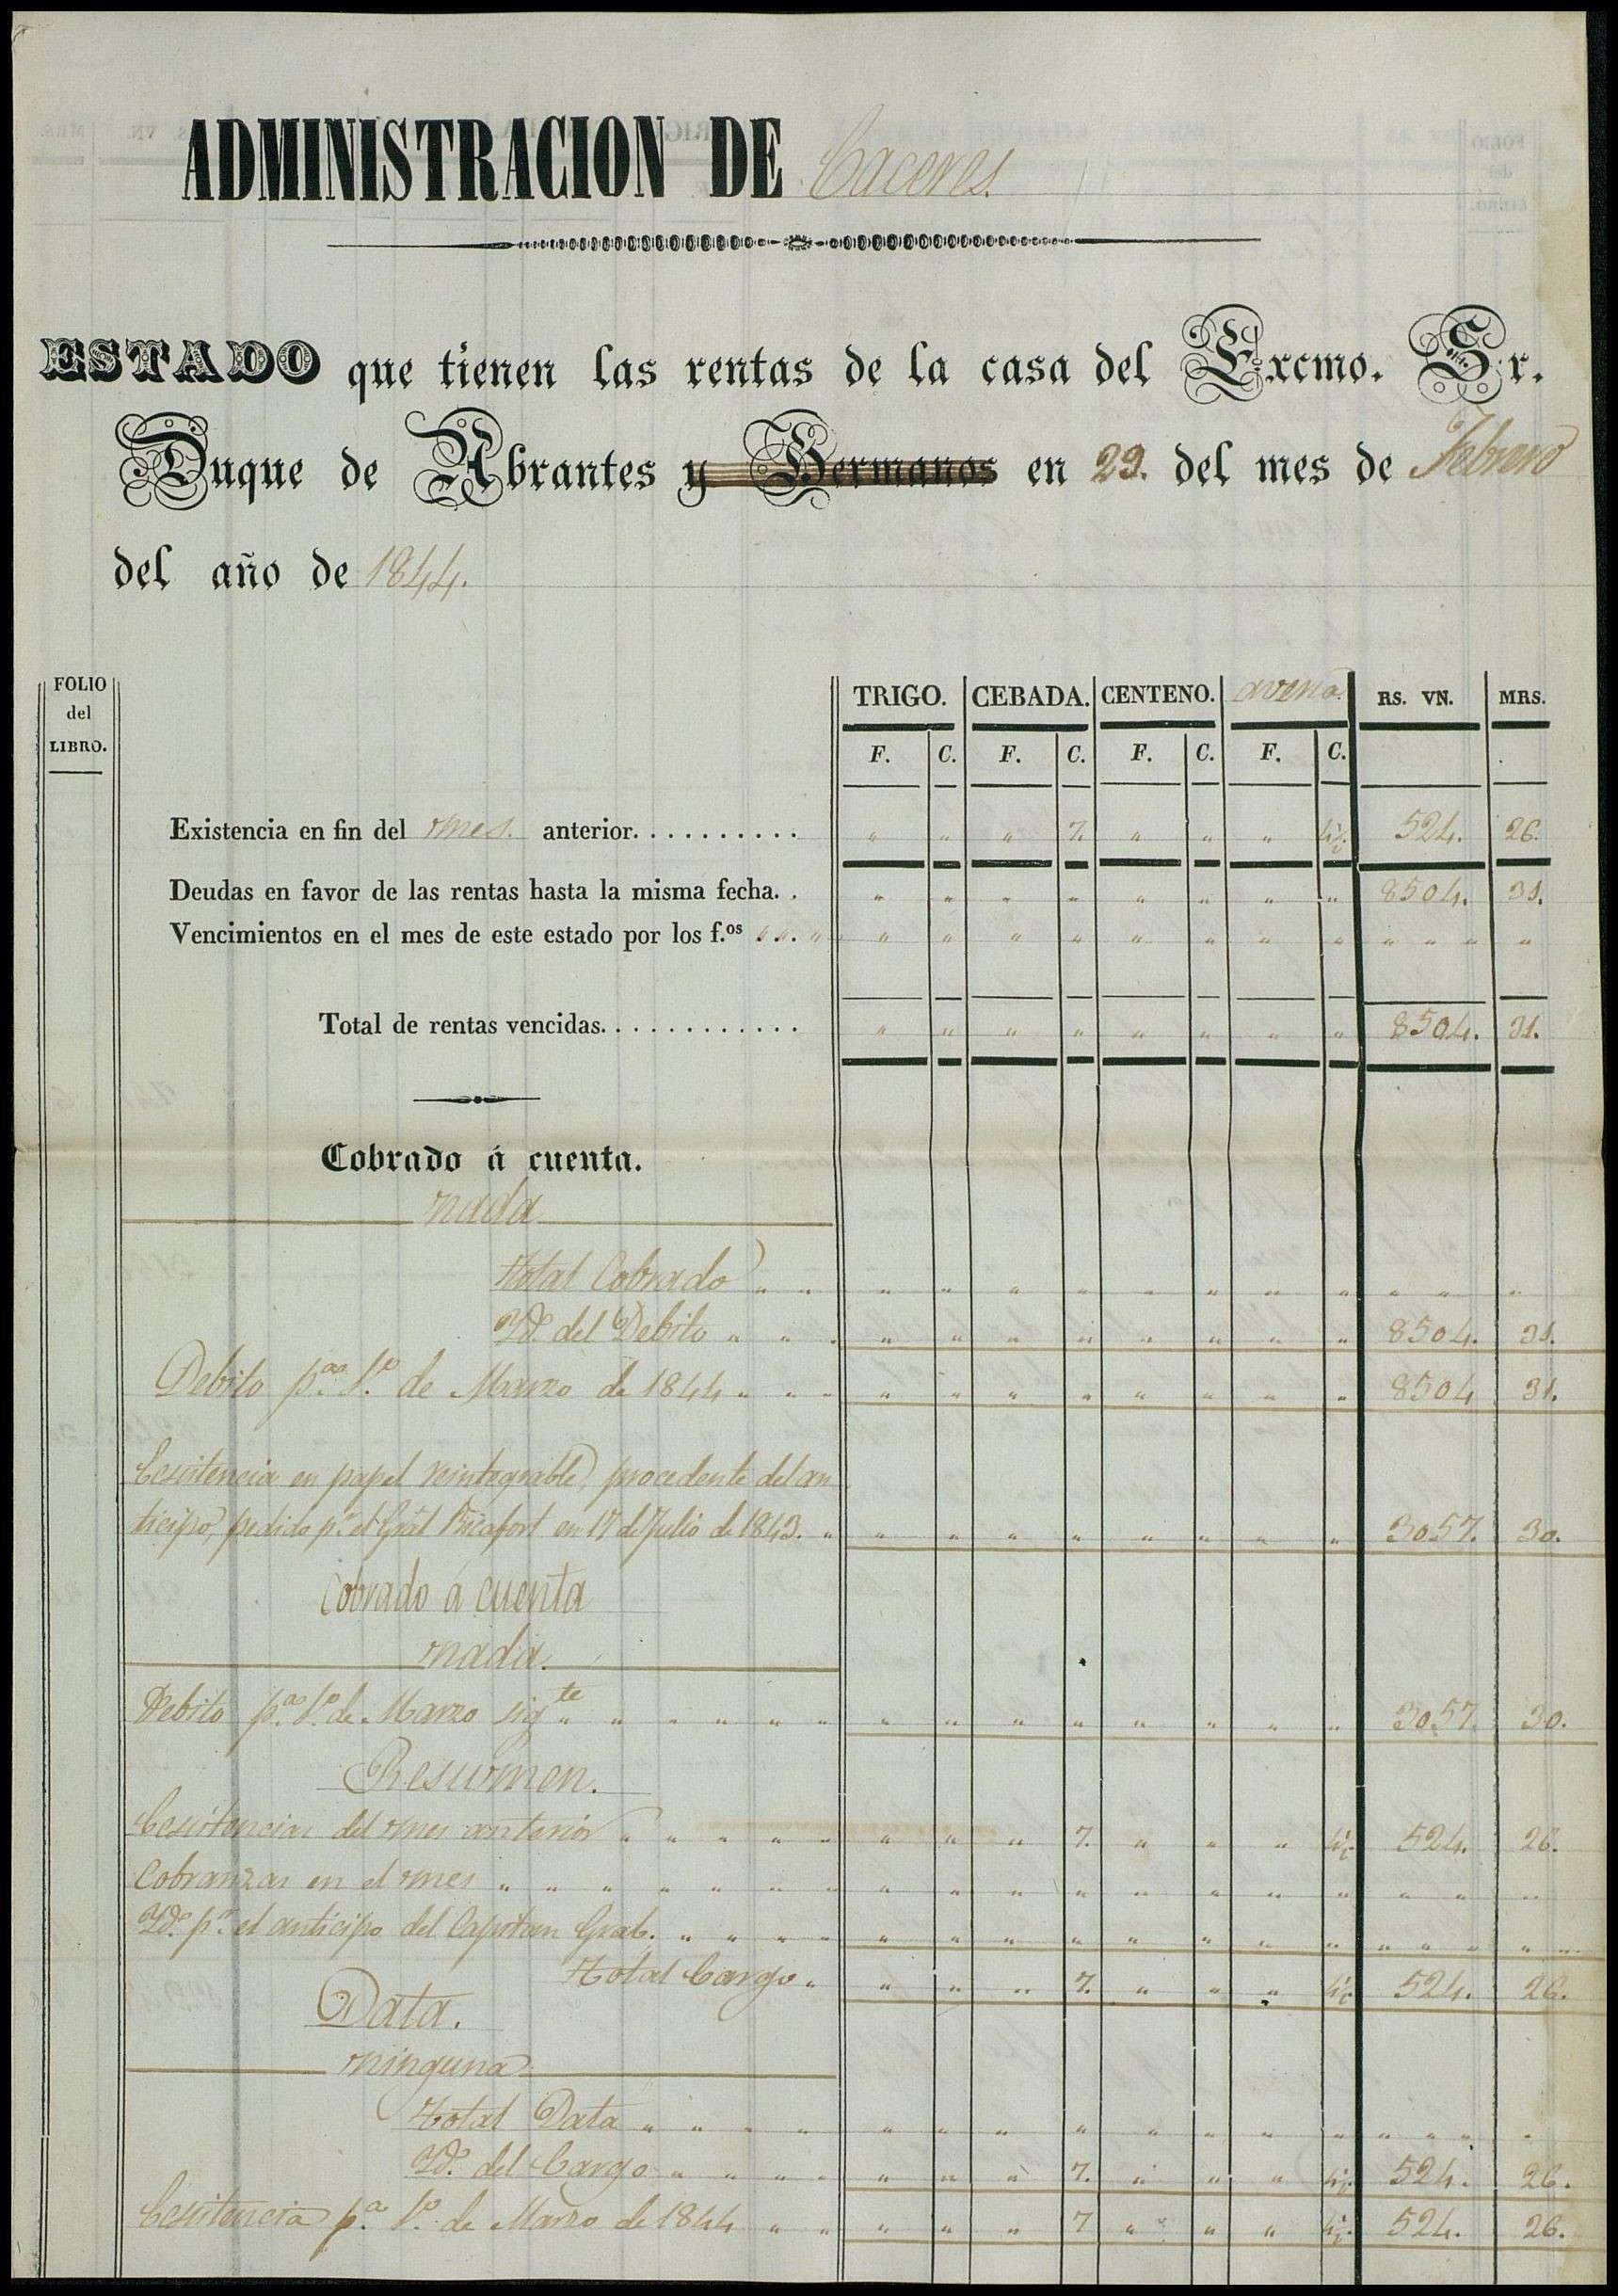 ADMINISTRACION DE Caceres.
ESTADO que tienen las rentas de la casa del Excmo. Sr.
Duque de Abrantes y Hermanos en 29. del mes de Febrero
del año de 1844.
FOLIO del LIBRO. TRIGO. CEBADA. CENTENO. avena. RS. VN. MRS.
F. C. F. C. F. C. F. C.
Existencia en fin del mes. anterior. . . . . . . . . . . " " " 7. " " " 524. 26.
Deudas en favor de las rentas hasta la misma fecha. . " " " " " " " " 8504. 31.
Vencimientos en el mes de este estado por los f.os " " " " " " " " " " " " " " "
Total de rentas vencidas. . . . . . . . . . . . . " " " " " " " " 8504. 31.
Cobrado á cuenta.
nada
Total Cobrado " " " " " " " " " " " " "
Yd. del Debito " " " " " " " " " " " 8504. 31.
Debito p.a 1.o de Marzo de 1844 " " " " " " " " " " " 8504 31.
Ecsistencia en papel reintegrable, procedente del an
ticipo, pedido p.r el Gral Ricafort en 17 de Julio de 1843. " " " " " " " " " 3057. 30.
Cobrado á cuenta
nada.
Debito p.a 1.o de Marzo sig.te " " " " " " " " " " " " " " 3057. 30.
Resumen.
Ecsistencias del mes anterior " " " " " " " " 7. " " " 524. 26.
Cobranzas en el mes " " " " " " " " " " " " " " " " " " "
Yd. p.r el anticipo del Capitan Gral. " " " " " " " " " " " " " " " "
Total Cargo " " " " 7. " " " 524. 26.
Data.
ninguna
Total Data " " " " " " " " " " " " " " " " "
Yd. del Cargo " " " " " " " 7. " " " 524. 26.
Ecsistencia p.a 1.o de Marzo de 1844 " " " " " 7 " " " 524. 26.